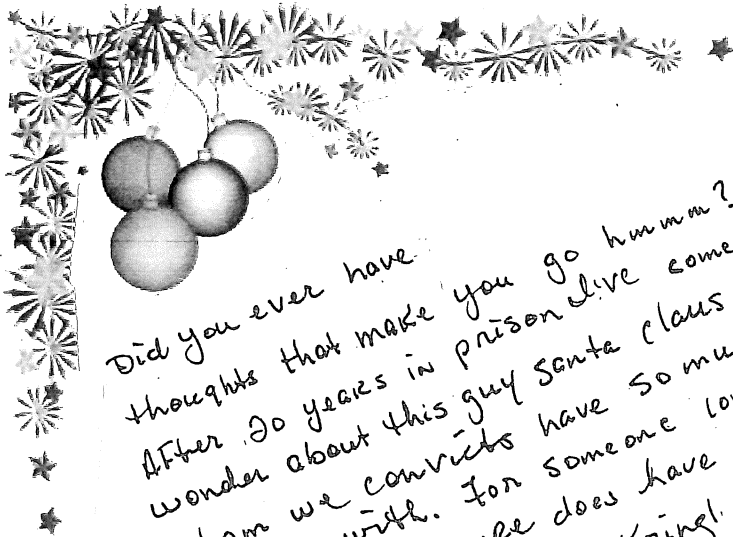 Did you ever have
thoughts that make you go hmmmm?
After 20 years in prison I've come
wonder about this guy santa claus
we convicts have so mu
with. For someone
does have